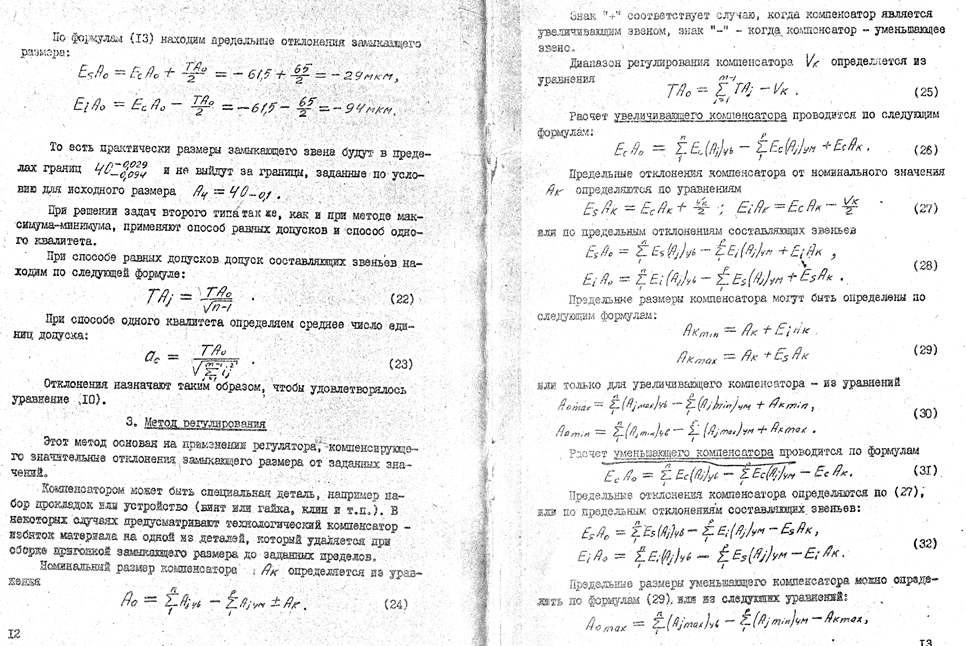 По формулам (13) находим предельные отклонения замыкающего
размера:
EsA₀ = EcA₀ + TA₀/2 = −61,5 + 65/2 = −29мкм,
EiA₀ = EcA₀ − TA₀/2 = −61,5 − 65/2 = −94мкм.
То есть практически размеры замыкающего звена будут в преде-
лах границ 40 −0,029 −0,094 и не выйдут за границы, заданные по усло-
вию для исходного размера A₄ = 40−0,1 .
При решении задач второго типа так же, как и при методе мак-
симума-минимума, применяют способ равных допусков и способ одно-
го квалитета.
При способе равных допусков допуск составляющих звеньев на-
ходим по следующей формуле:
TAj = TA₀/√n−1 . (22)
При способе одного квалитета определяем среднее число еди-
ниц допуска:
ac = TA₀/√Σij² . (23)
Отклонения назначают таким образом, чтобы удовлетворялось
уравнение (10).
3. Метод регулирования
Этот метод основан на применении регулятора, компенсирующе-
го значительные отклонения замыкающего размера от заданных зна-
чений.
Компенсатором может быть специальная деталь, например на-
бор прокладок или устройство (винт или гайка, клин и т.п.). В
некоторых случаях предусматривают технологический компенсатор -
избыток материала на одной из деталей, который удаляется при
сборке пригонкой замыкающего размера до заданных пределов.
Номинальный размер компенсатора Aк определяется из урав-
нения
A₀ = Σ₁ⁿ Ajув − Σ₁ᵖ Ajум ± Aк . (24)
12
Знак "+" соответствует случаю, когда компенсатор является
увеличивающим звеном, знак "-" - когда компенсатор - уменьшающее
звено.
Диапазон регулирования компенсатора Vк определяется из
уравнения
TA₀ = Σ TAj − Vк . (25)
Расчет увеличивающего компенсатора проводится по следующим
формулам:
EcA₀ = Σ₁ⁿ Ec(Aj)ув − Σ₁ᵖ Ec(Aj)ум + EcAк . (26)
Предельные отклонения компенсатора от номинального значения
Aк определяются по уравнениям
EsAк = EcAк + Vк/2 ; EiAк = EcAк − Vк/2 (27)
или по предельным отклонениям составляющих звеньев
EsA₀ = Σ₁ⁿ Es(Aj)ув − Σ₁ᵖ Ei(Aj)ум + EiAк ,
EiA₀ = Σ₁ⁿ Ei(Aj)ув − Σ₁ᵖ Es(Aj)ум + EsAк . (28)
Предельные размеры компенсатора могут быть определены по
следующим формулам:
Aкmin = Aк + EiAк
Aкmax = Aк + EsAк (29)
или только для увеличивающего компенсатора - из уравнений
A₀max = Σ₁ⁿ (Ajmax)ув − Σ₁ᵖ (Ajmin)ум + Aкmin ,
A₀min = Σ₁ⁿ (Ajmin)ув − Σ₁ᵖ (Ajmax)ум + Aкmax . (30)
Расчет уменьшающего компенсатора проводится по формулам
EcA₀ = Σ₁ⁿ Ec(Aj)ув − Σ₁ᵖ Ec(Aj)ум − EcAк . (31)
Предельные отклонения компенсатора определяются по (27),
или по предельным отклонениям составляющих звеньев:
EsA₀ = Σ₁ⁿ Es(Aj)ув − Σ₁ᵖ Ei(Aj)ум − EsAк ,
EiA₀ = Σ₁ⁿ Ei(Aj)ув − Σ₁ᵖ Es(Aj)ум − EiAк . (32)
Предельные размеры уменьшающего компенсатора можно опреде-
лить по формулам (29) или из следующих уравнений:
A₀max = Σ₁ⁿ (Ajmax)ув − Σ₁ᵖ (Ajmin)ум − Aкmax ,
13